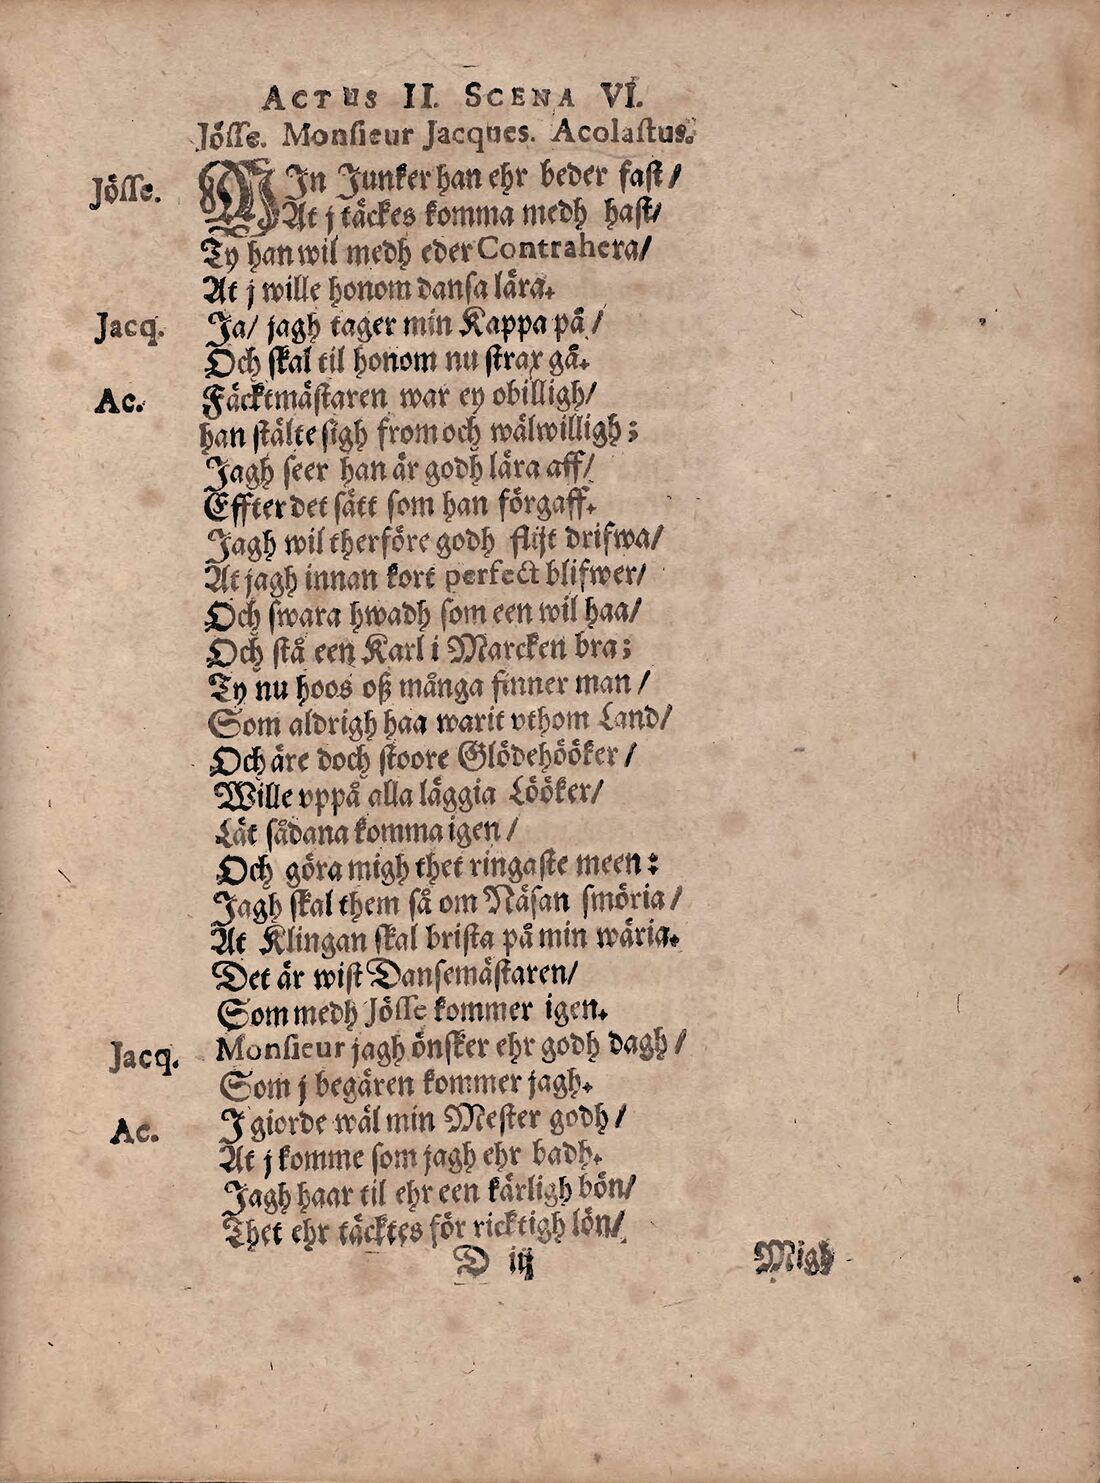 ACTUS II. SCENA VI.
Jösse. Monsieur Jacques. Acolastus.
Jösse. MIn Junker han ehr beder fast/
At j täckes komma medh hast/
Ty han wil medh eder Contrahera/
At j wille honom dansa lära.
Jacq. Ja/ jagh tager min Kappa på/
Och skal til honom nu strax gå.
Ac. Fäcktmästaren war ey obilligh/
han stälte sigh from och wälwilligh;
Jagh seer han är godh lära aff/
Effter det sätt som han förgaff.
Jagh wil therföre godh flijt drifwa/
At jagh innan kort perfect blifwer/
Och swara hwadh som een wil haa/
Och stå een Karl i Marcken bra;
Ty nu hoos oß många finner man/
Som aldrigh haa warit vthom Land/
Och äre doch stoore Glödehööker/
Wille vppå alla läggia Lööker/
Lät sådana komma igen/
Och göra migh thet ringaste meen:
Jagh skal them så om Näsan smöria/
At Klingan skal brista på min wäria.
Det är wist Dansemästaren/
Som medh Jösse kommer igen.
Jacq. Monsieur jagh önsker ehr godh dagh/
Som j begären kommer jagh.
Ac. J giorde wäl min Mester godh/
At j komme som jagh ehr badh.
Jagh haar til ehr een kärligh bön/
Thet ehr täcktes för ricktigh lön/
D iij Migh